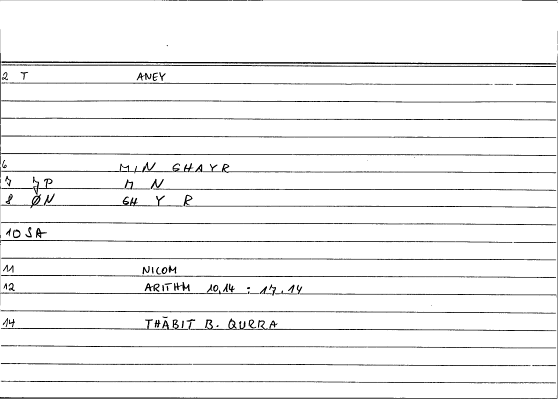 2 T ANEY
6 MIN GHAYR
7 7P M N
8 ØN GH Y R
10 SA
11 NICOM
12 ARITHM 10,14 : 17.14
14 THĀBIT B. QURRA